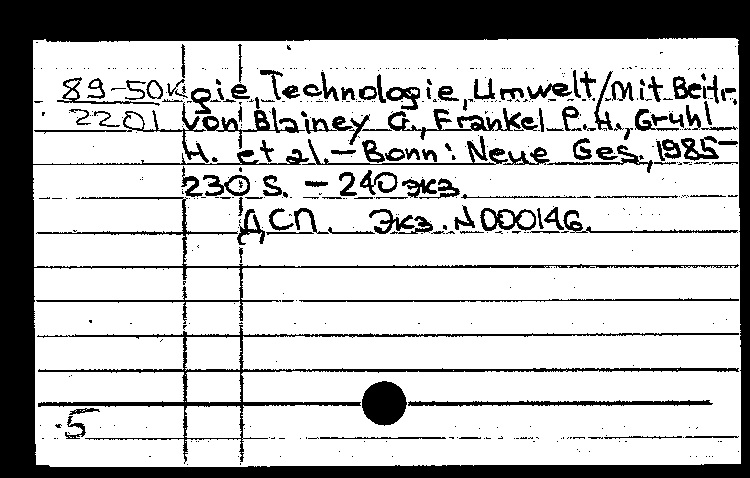 89-50к gie, Technologie, Umwelt/Mit Beitr.
2201 von Blainey G., Frankel P. H., Gruhl
H. et al. – Bonn: Neue Ges., 1985 –
230 S. – 240 экз.
ДСП. Экз. N 000146.
5